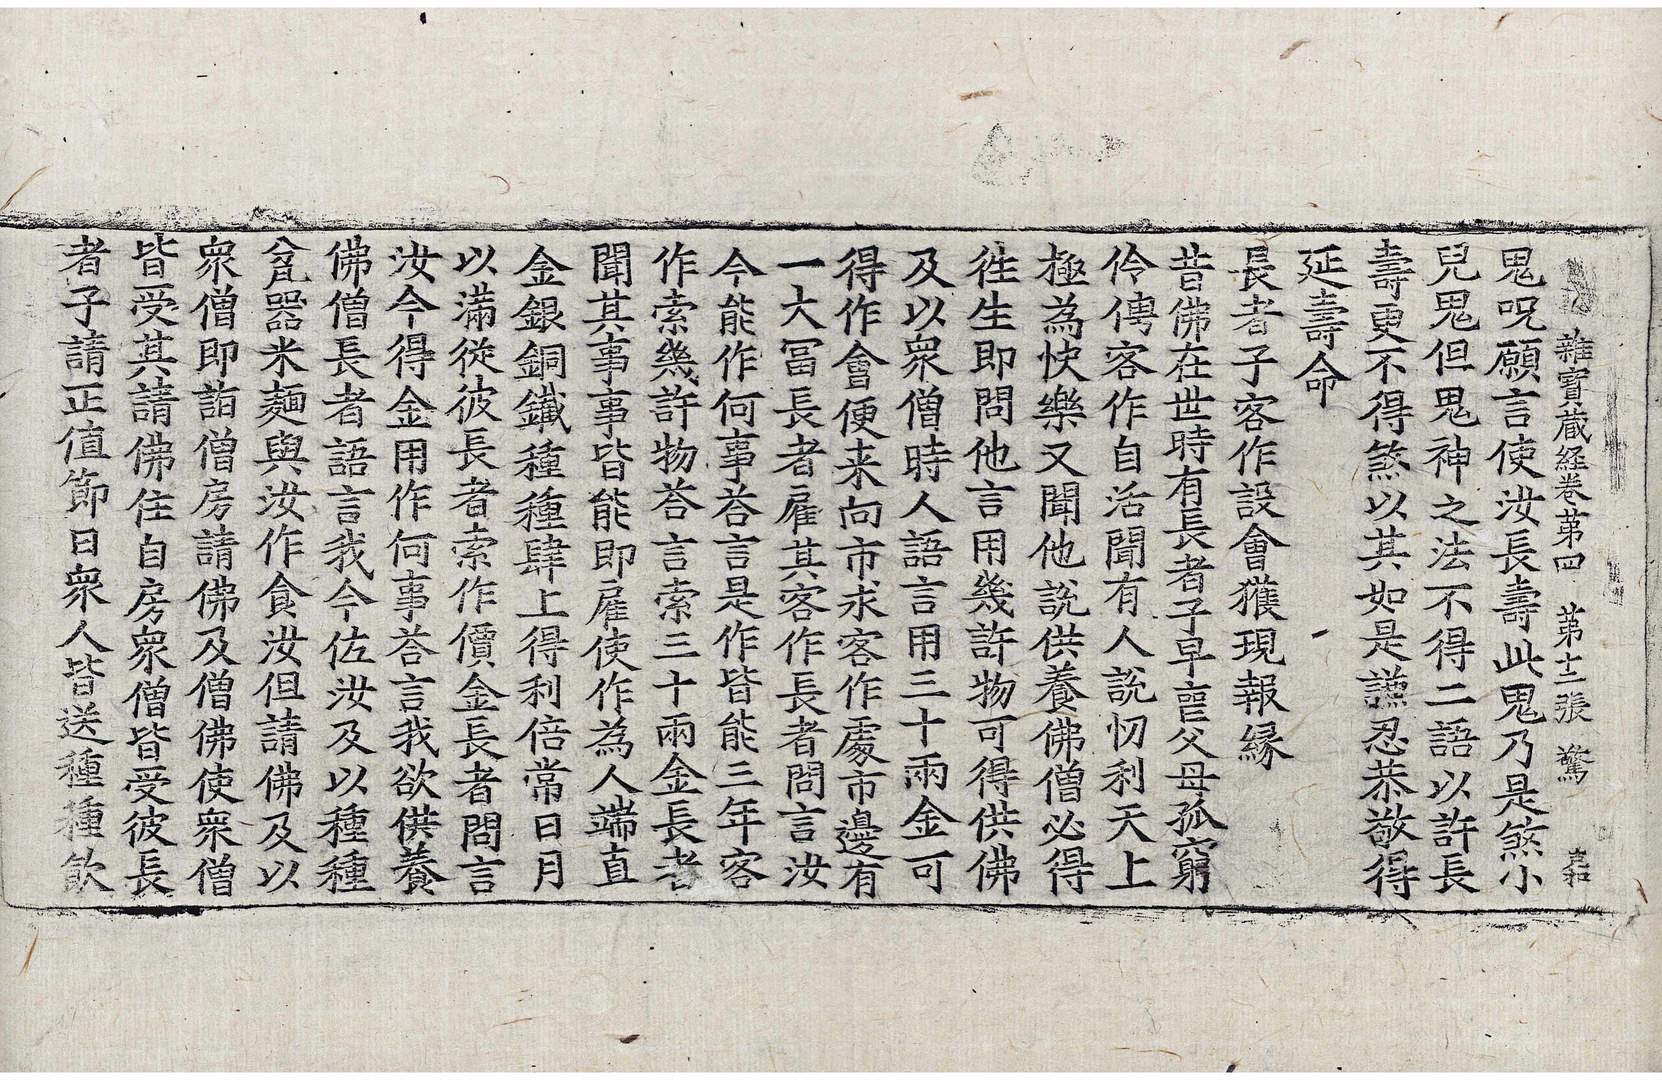 雜寶蔵経卷苐四　苐十二張　驚
鬼呪願言使汝長壽此鬼乃是煞小
兒鬼但鬼神之法不得二語以許長
壽更不得煞以其如是謙忍恭敬得
延壽命
長者子客作設會獲現報縁
昔佛在世時有長者子早喪父母孤窮
伶俜客作自活聞有人說忉利天上
極為快樂又聞他說供養佛僧必得
徃生即問他言用幾許物可得供佛
及以衆僧時人語言用三十兩金可
得作會便来向市求客作處市邊有
一大冨長者雇其客作長者問言汝
今能作何事荅言是作皆能三年客
作索幾許物荅言索三十兩金長者
聞其事事皆能即雇使作為人端直
金銀銅鐵種種肆上得利倍常日月
以滿從彼長者索作價金長者問言
汝今得金用作何事荅言我欲供養
佛僧長者語言我今佐汝及以種種
瓫器米麺與汝作食汝但請佛及以
衆僧即詣僧房請佛及僧佛使衆僧
皆受其請佛住自房衆僧皆受彼長
者子請正值節日衆人皆送種種飲